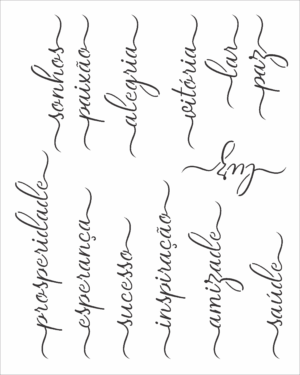 sonhos
paixão
alegria
vitória
lar
paz
luz
prosperidade
esperança
sucesso
inspiração
amizade
saúde